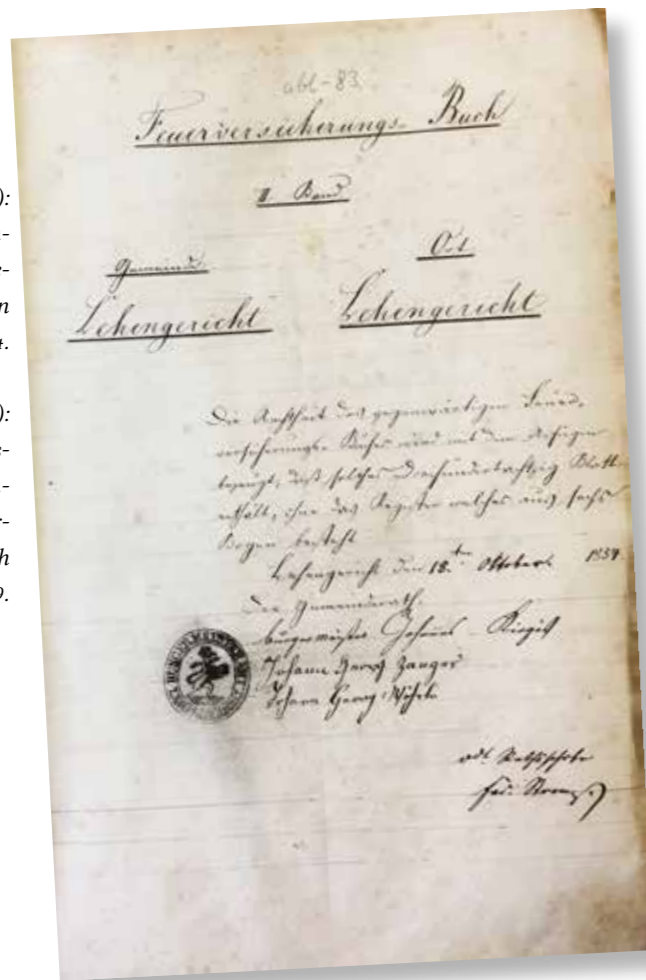 ):
n-
e-
n
t.
):
s-
n-
r-
h
9.
abl-83
Feuerversicherungs-Buch
II. Band
Gemeinde
Ort
Lehengericht
Lehengericht
Die Aechtheit des gegenwärtigen Feuer-
versicherungs-Buches wird mit dem Anfügen
bezeugt, daß solches Dreihundertachtzig Blatt
enthält, ohne das Register welches aus sechs
Bogen besteht
Lehengericht den 18.ten Oktober
Der Gemeinderath.
Bürgermeister Johannes
Johann Georg Zanger
Johann Georg Wöhrle
vdt Rathschrbr